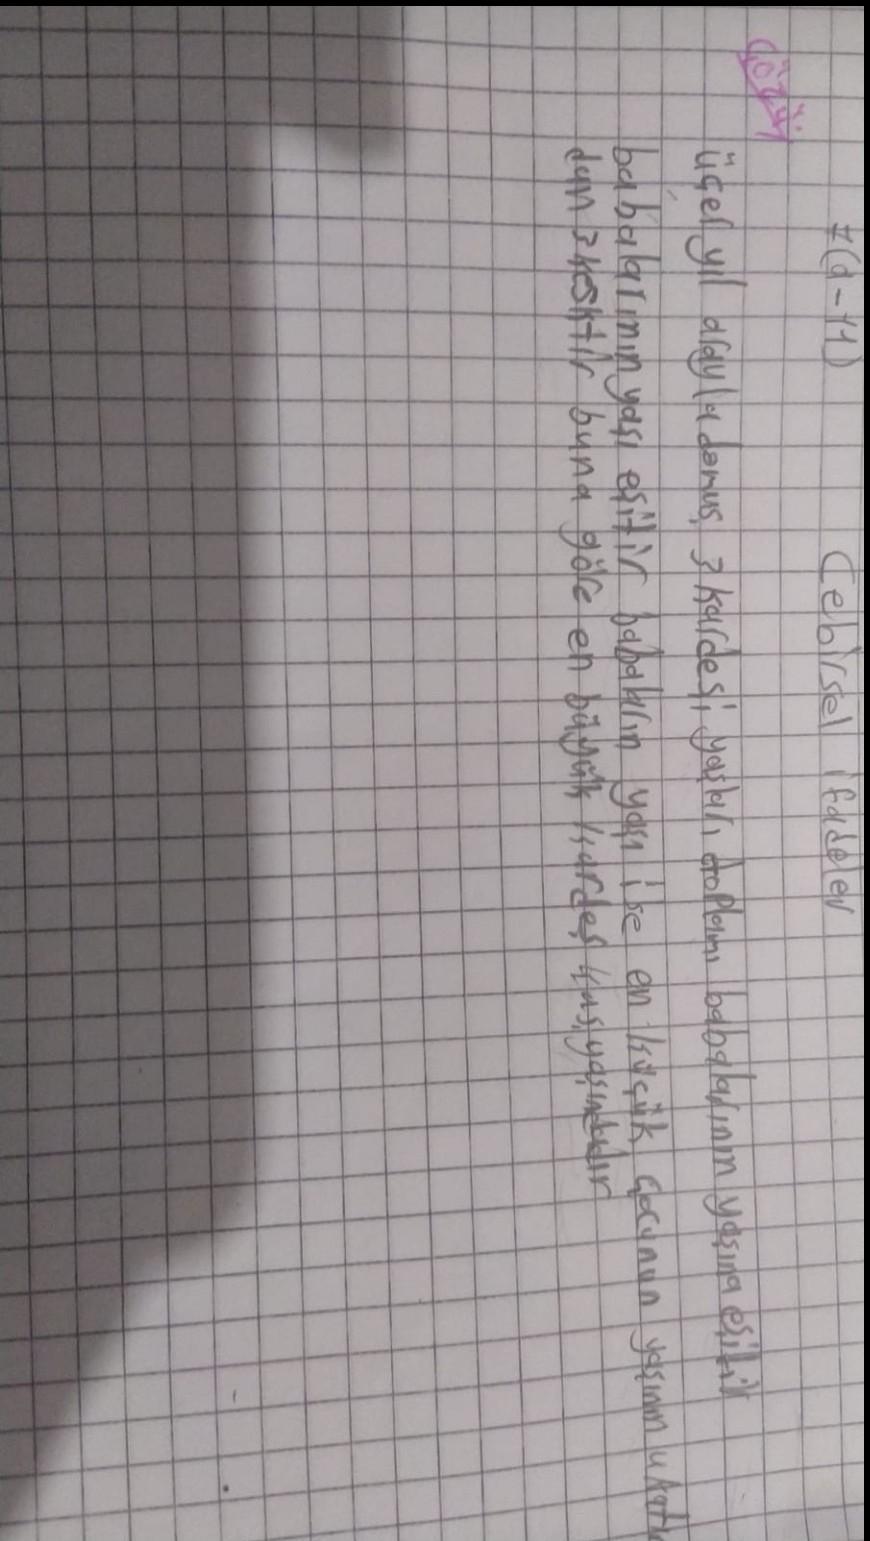 7(d-11) Cebirsel ifadeler
üçer yıl arayla domuş 3 kardeşi yaşları toplamı babalarının yaşına eşitir
babalarının yaşı eşitir babaların yaşı ise en küçük çocunun yaşının 4 katın
dan 3 kesktir buna göre en büyük kardeş kaç yaşındadır